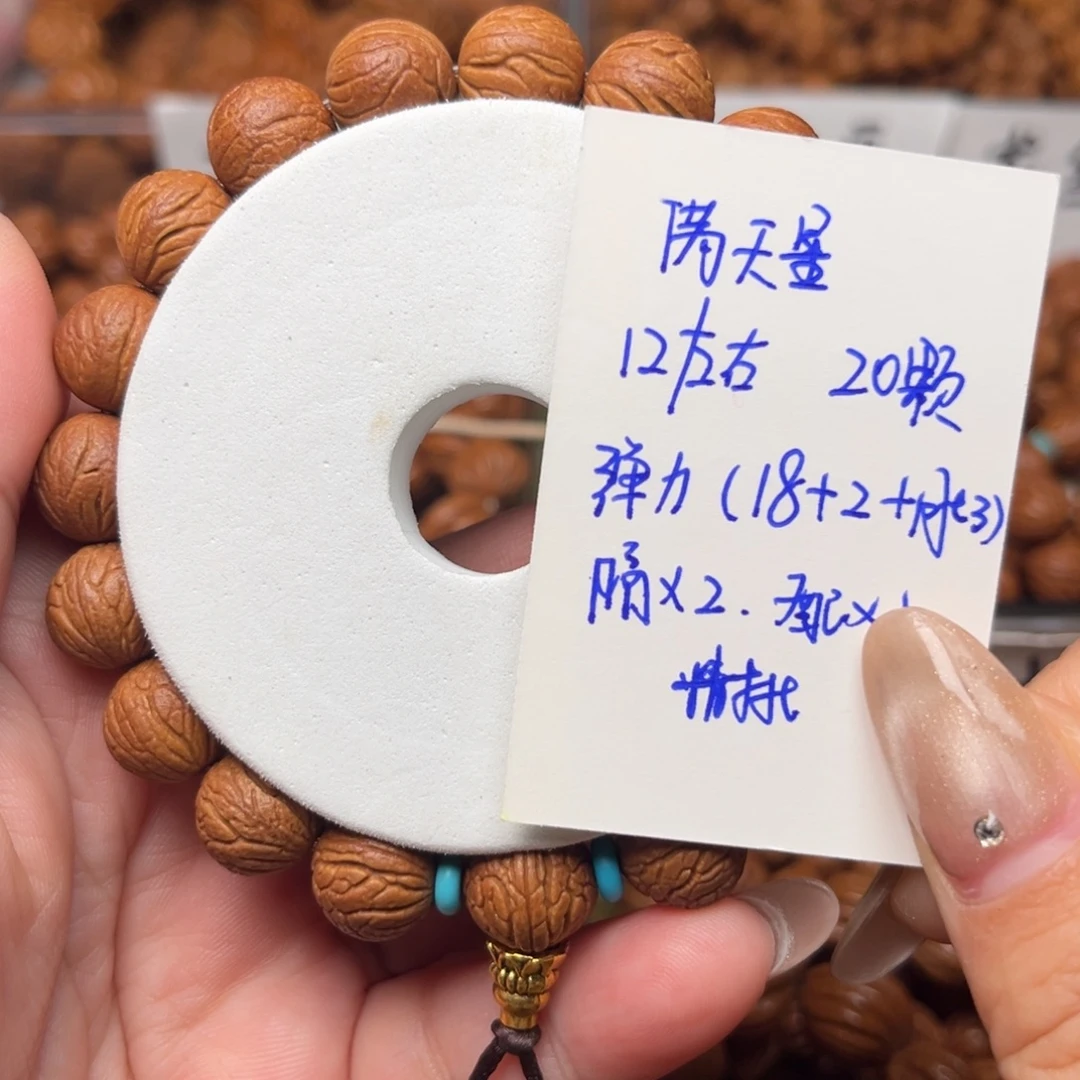 满天星
12左右 20颗
弹力(18+2+附3)
隔×2. 配×
精托